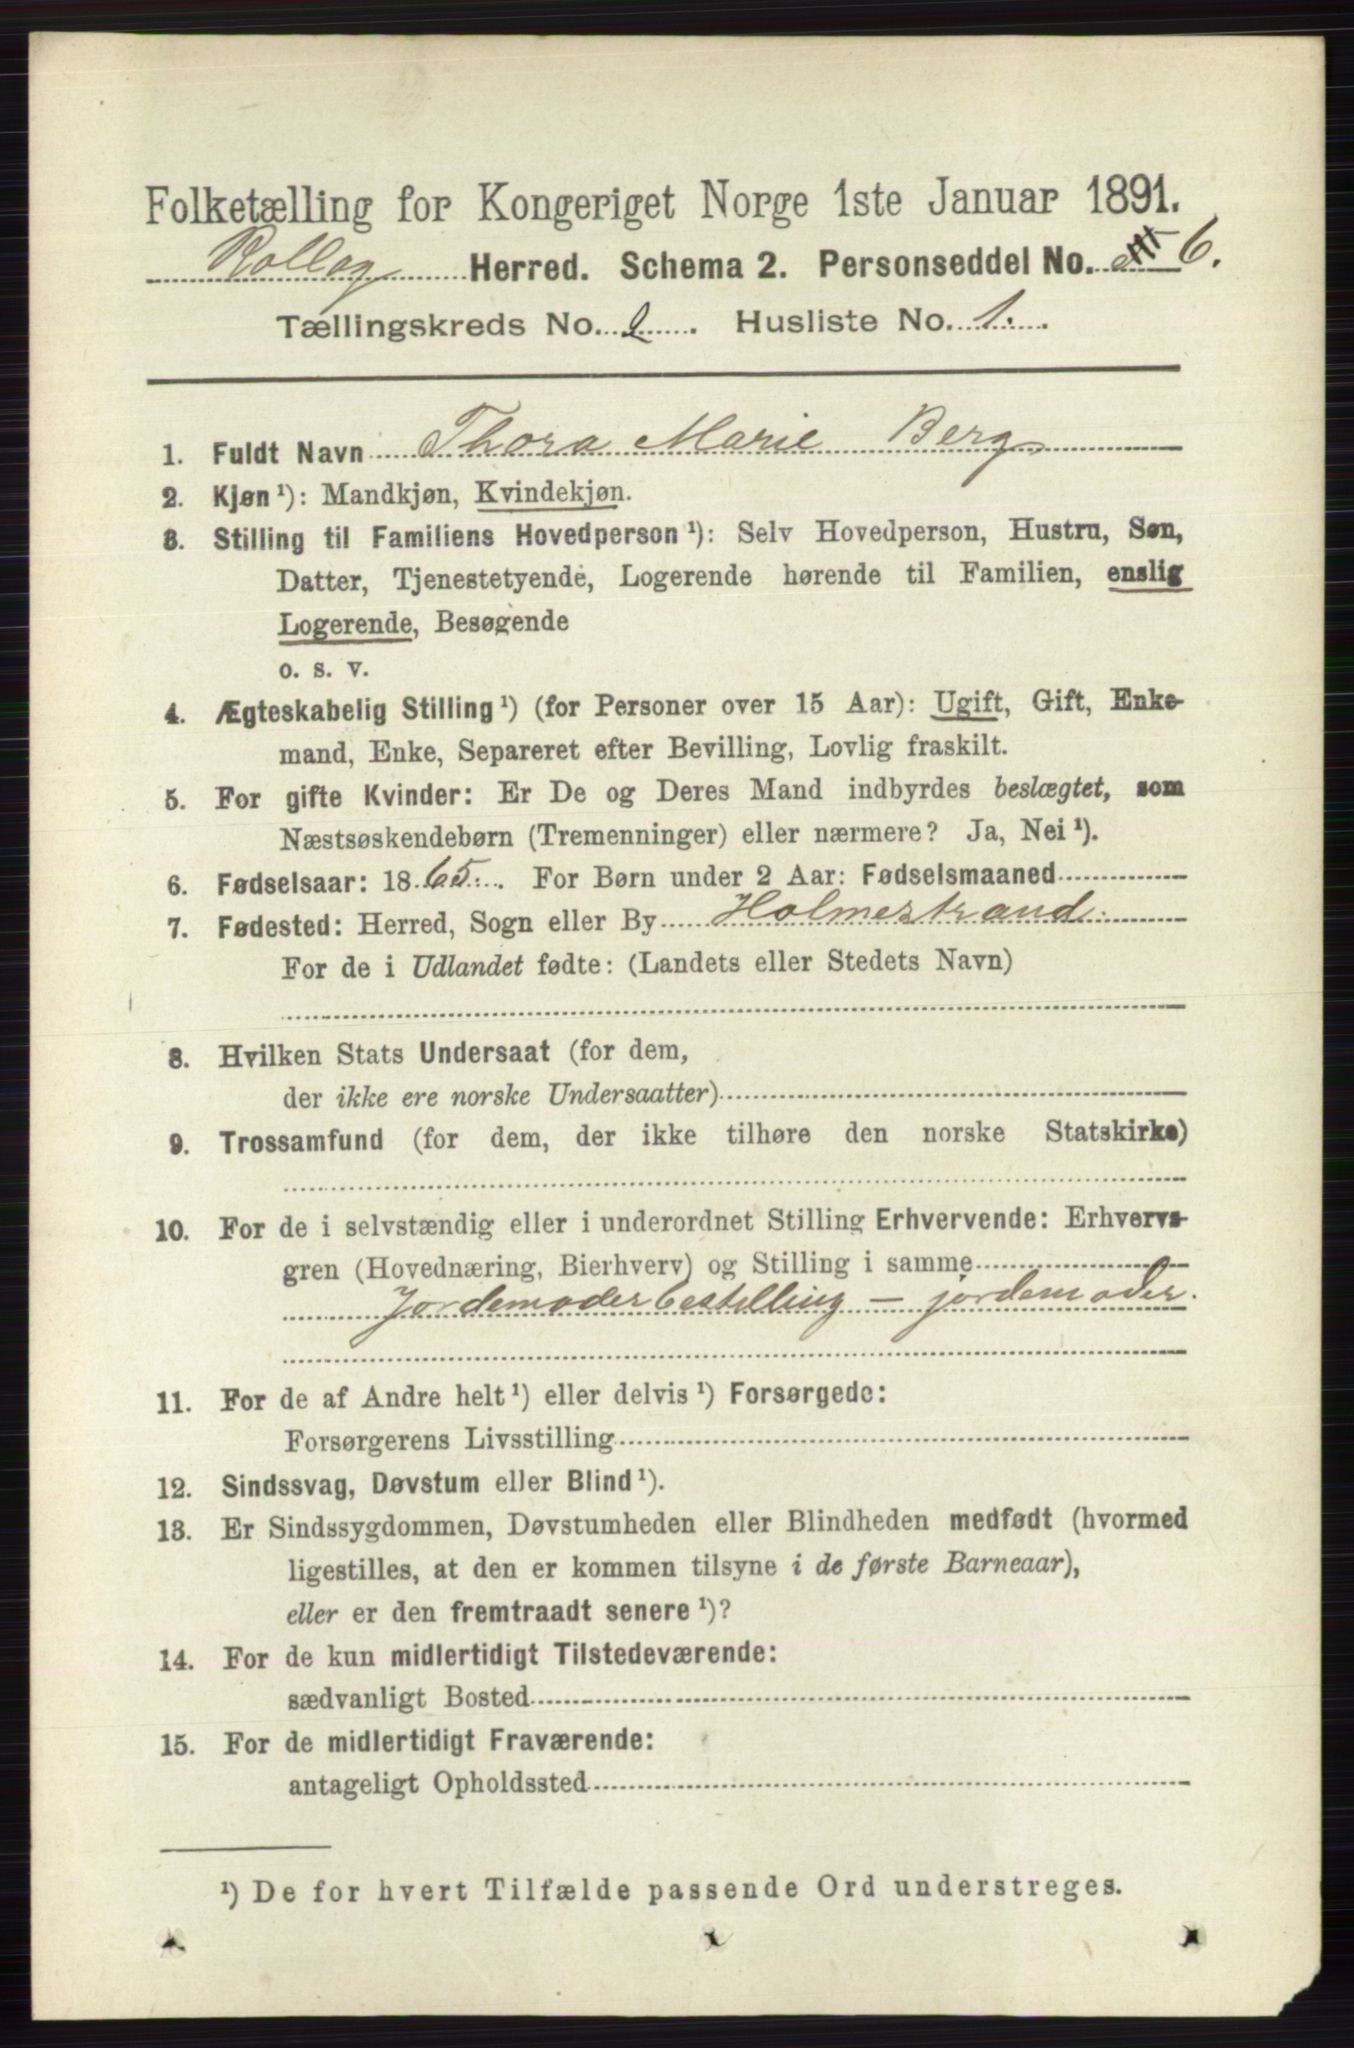 Folketælling for Kongeriget Norge 1ste Januar 1891.
Rollag Herred. Schema 2. Personseddel No. 6.
Tællingskreds No. 2. Husliste No. 1.
1. Fuldt Navn Thora Marie Berg
2. Kjøn ¹): Mandkjøn, Kvindekjøn.
3. Stilling til Familiens Hovedperson ¹): Selv Hovedperson, Hustru, Søn,
Datter, Tjenestetyende, Logerende hørende til Familien, enslig
Logerende, Besøgende
o. s. v.
4. Ægteskabelig Stilling ¹) (for Personer over 15 Aar): Ugift, Gift, Enke-
mand, Enke, Separeret efter Bevilling, Lovlig fraskilt.
5. For gifte Kvinder: Er De og Deres Mand indbyrdes beslægtet, som
Næstsøskendebørn (Tremenninger) eller nærmere? Ja, Nei ¹).
6. Fødselsaar: 1865. For Børn under 2 Aar: Fødselsmaaned
7. Fødested: Herred, Sogn eller By Holmestrand.
For de i Udlandet fødte: (Landets eller Stedets Navn)
8. Hvilken Stats Undersaat (for dem,
der ikke ere norske Undersaatter)
9. Trossamfund (for dem, der ikke tilhøre den norske Statskirke)
10. For de i selvstændig eller i underordnet Stilling Erhvervende: Erhvervs-
gren (Hovednæring, Bierhverv) og Stilling i samme
Jordemoderbestilling – jordemoder.
11. For de af Andre helt ¹) eller delvis ¹) Forsørgede:
Forsørgerens Livsstilling
12. Sindssvag, Døvstum eller Blind ¹).
13. Er Sindssygdommen, Døvstumheden eller Blindheden medfødt (hvormed
ligestilles, at den er kommen tilsyne i de første Barneaar),
eller er den fremtraadt senere ¹)?
14. For de kun midlertidigt Tilstedeværende:
sædvanligt Bosted
15. For de midlertidigt Fraværende:
antageligt Opholdssted
¹) De for hvert Tilfælde passende Ord understreges.